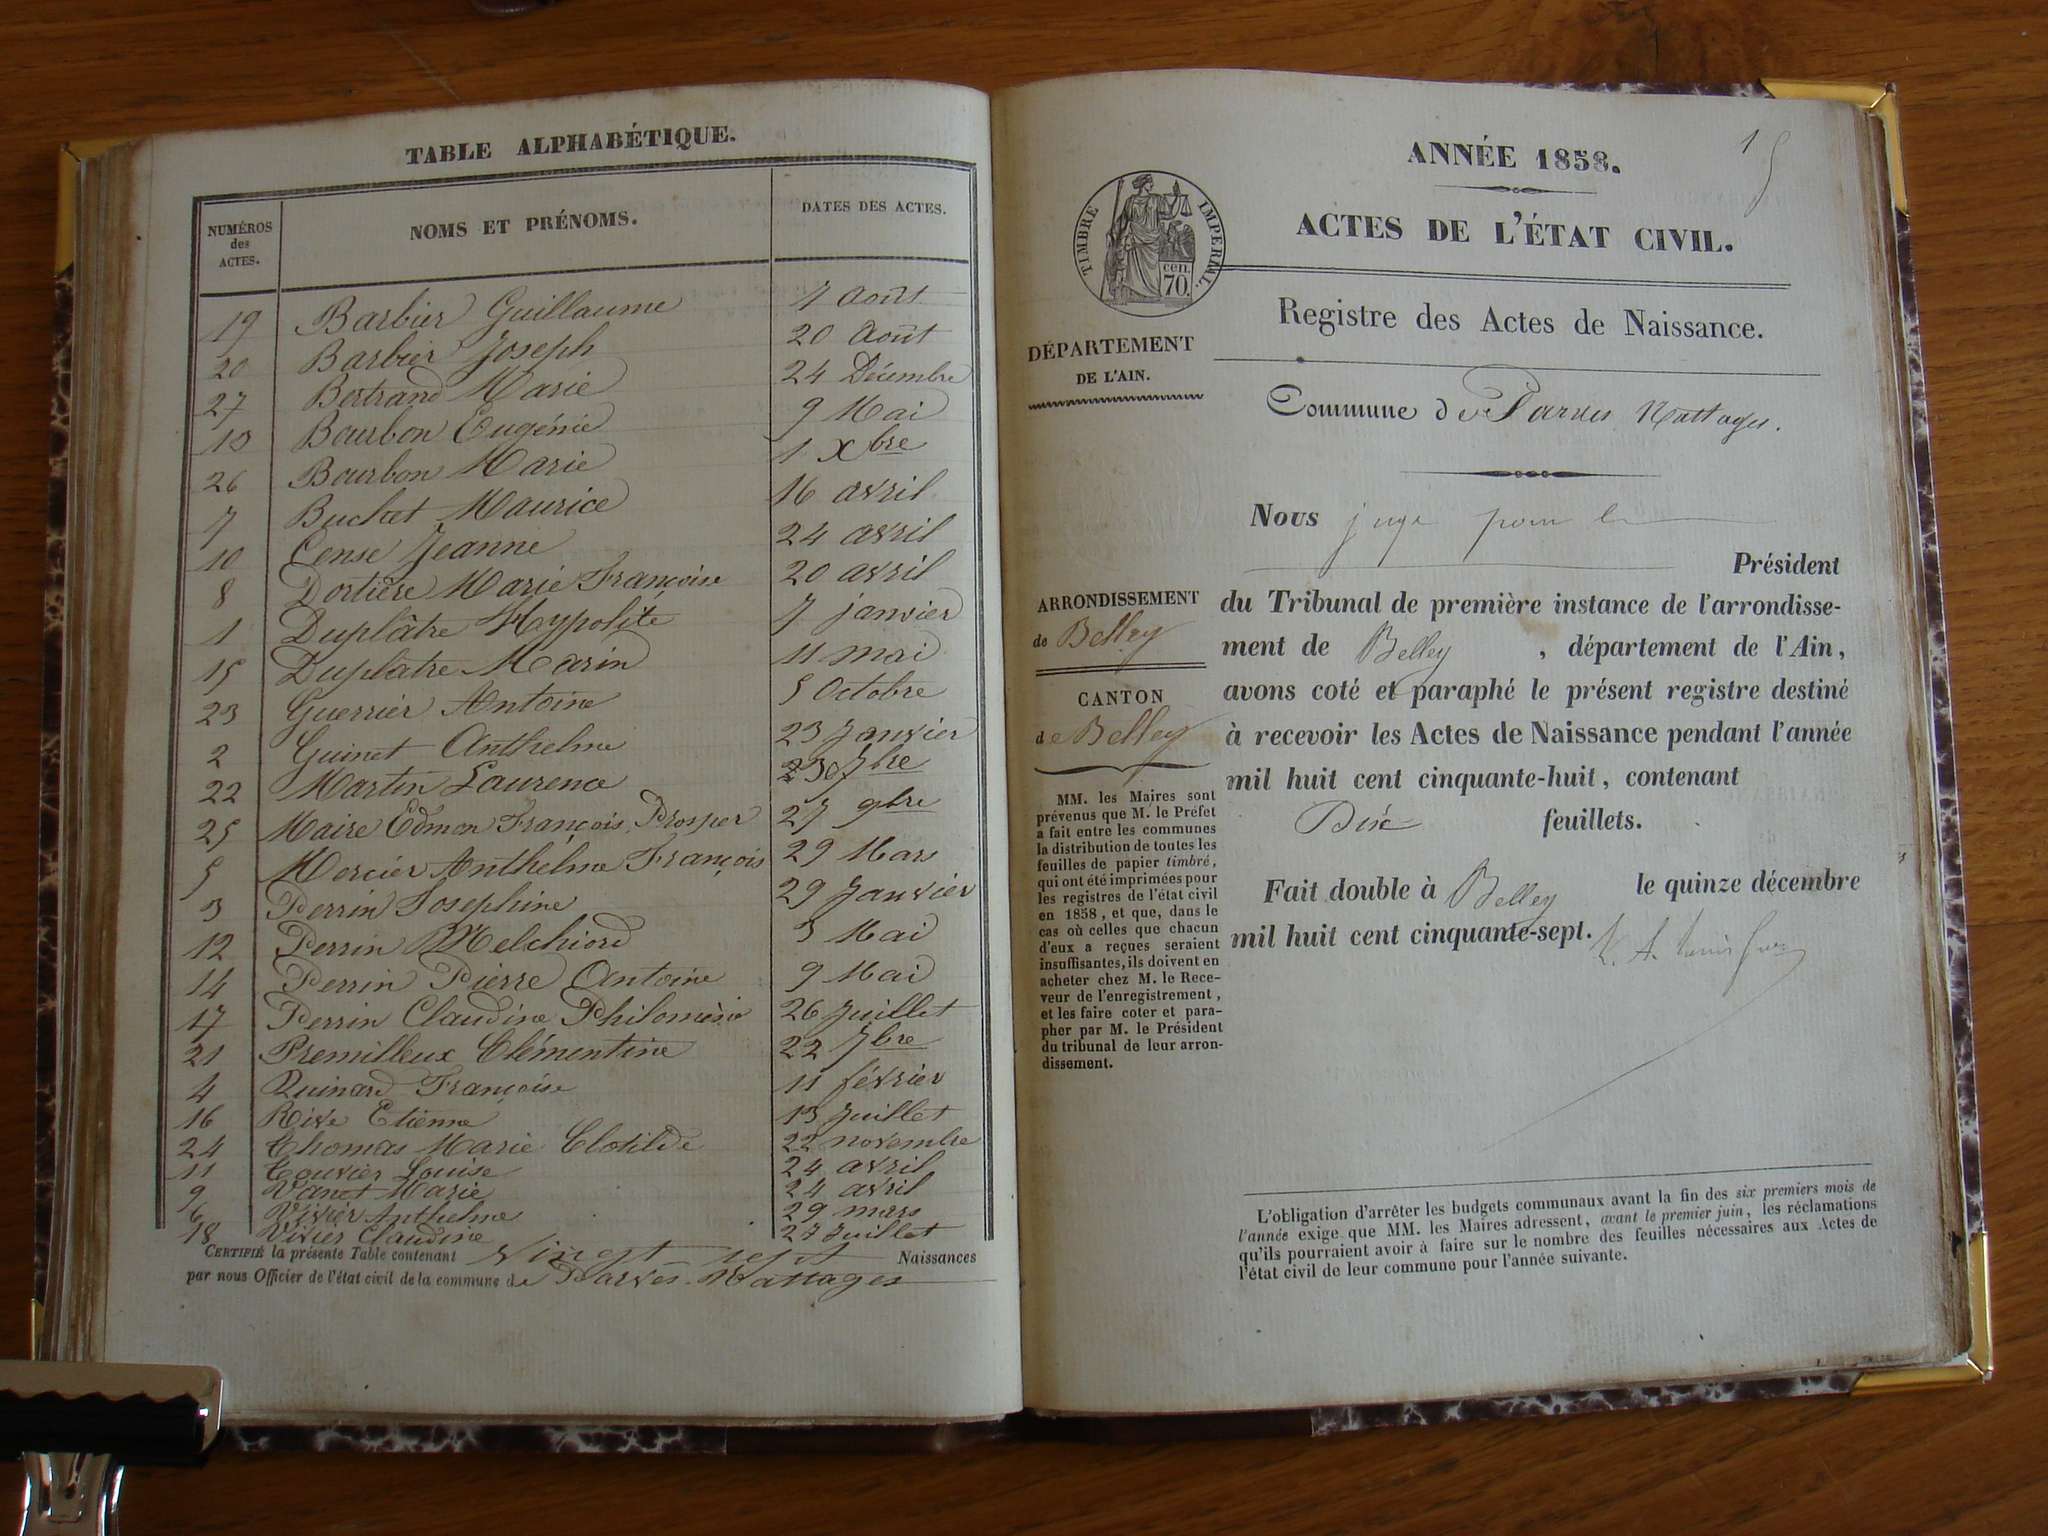 TABLE ALPHABÉTIQUE.
NUMÉROS
des
ACTES.
NOMS ET PRÉNOMS.
DATES DES ACTES.
19 Barbier Guillaume 7 Août
20 Barbier Joseph 20 Août
27 Bertrand Marie 24 Décembre
13 Bourbon Eugénie 9 Mai
26 Bourbon Marie 1 Xbre
7 Buchet Maurice 16 avril
10 Cense Jeanne 24 avril
8 Dortière Marie Françoise 20 avril
1 Duplâtre Hypolite 7 janvier
15 Duplatre Marin 11 mai
23 Guerrier Antoine 5 Octobre
2 Guinet Anthelme 23 Janvier
22 Martin Laurence 23 7bre
25 Maire Edmon François Prosper 27 9bre
5 Mercier Anthelme François 29 Mars
3 Perrin Josephine 29 Janvier
12 Perrin Melchiord 3 Mai
14 Perrin Pierre Antoine 9 Mai
17 Perrin Claudine Philomène 26 Juillet
21 Premilleux Clémentine 22 7bre
4 Quinard Françoise 11 février
16 Rive Etienne 13 Juillet
24 Thomas Marie Clotilde 22 novembre
11 Touvier Louise 24 avril
9 Vanet Marie 24 avril
6 Vivier Anthelme 29 mars
18 Vivier Claudine 27 Juillet
CERTIFIÉ la présente Table contenant Vingt sept Naissances
par nous Officier de l'état civil de la commune de Parves Nattages
15
ANNÉE 1858.
ACTES DE L'ÉTAT CIVIL.
TIMBRE IMPÉRIAL.
cen.
70.
Registre des Actes de Naissance.
DÉPARTEMENT
DE L'AIN.
Commune de Parves Nattages.
Nous juge pour le
Président
ARRONDISSEMENT
de Belley
CANTON
de Belley
du Tribunal de première instance de l'arrondisse-
ment de Belley, département de l'Ain,
avons coté et paraphé le présent registre destiné
à recevoir les Actes de Naissance pendant l'année
mil huit cent cinquante-huit, contenant
Dix feuillets.
Fait double à Belley le quinze décembre
mil huit cent cinquante-sept.
MM. les Maires sont
prévenus que M. le Préfet
a fait entre les communes
la distribution de toutes les
feuilles de papier timbré,
qui ont été imprimées pour
les registres de l'état civil
en 1858, et que, dans le
cas où celles que chacun
d'eux a reçues seraient
insuffisantes, ils doivent en
acheter chez M. le Rece-
veur de l'enregistrement,
et les faire coter et para-
pher par M. le Président
du tribunal de leur arron-
dissement.
L'obligation d'arrêter les budgets communaux avant la fin des six premiers mois de
l'année exige que MM. les Maires adressent, avant le premier juin, les réclamations
qu'ils pourraient avoir à faire sur le nombre des feuilles nécessaires aux Actes de
l'état civil de leur commune pour l'année suivante.